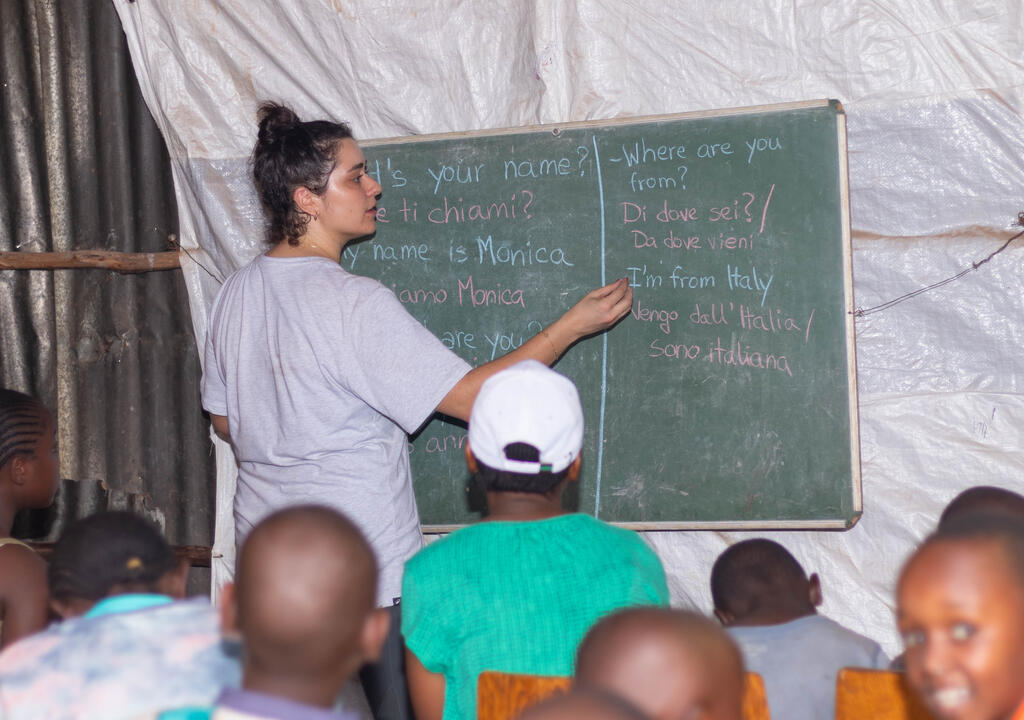 's your name?
e ti chiami?
y name is Monica
iamo Monica
are you?
ann
-Where are you
from?
Di dove sei?/
Da dove vieni
I'm from Italy
Vengo dall'Italia/
sono italiana